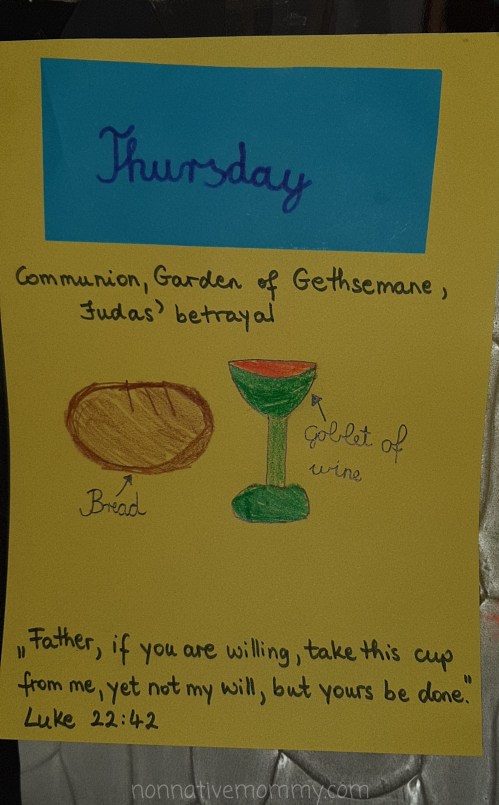 Thursday
Communion, Garden of Gethsemane,
Judas' betrayal
Goblet of
wine
Bread
„Father, if you are willing, take this cup
from me, yet not my will, but yours be done."
Luke 22:42
nonnativemommy.com